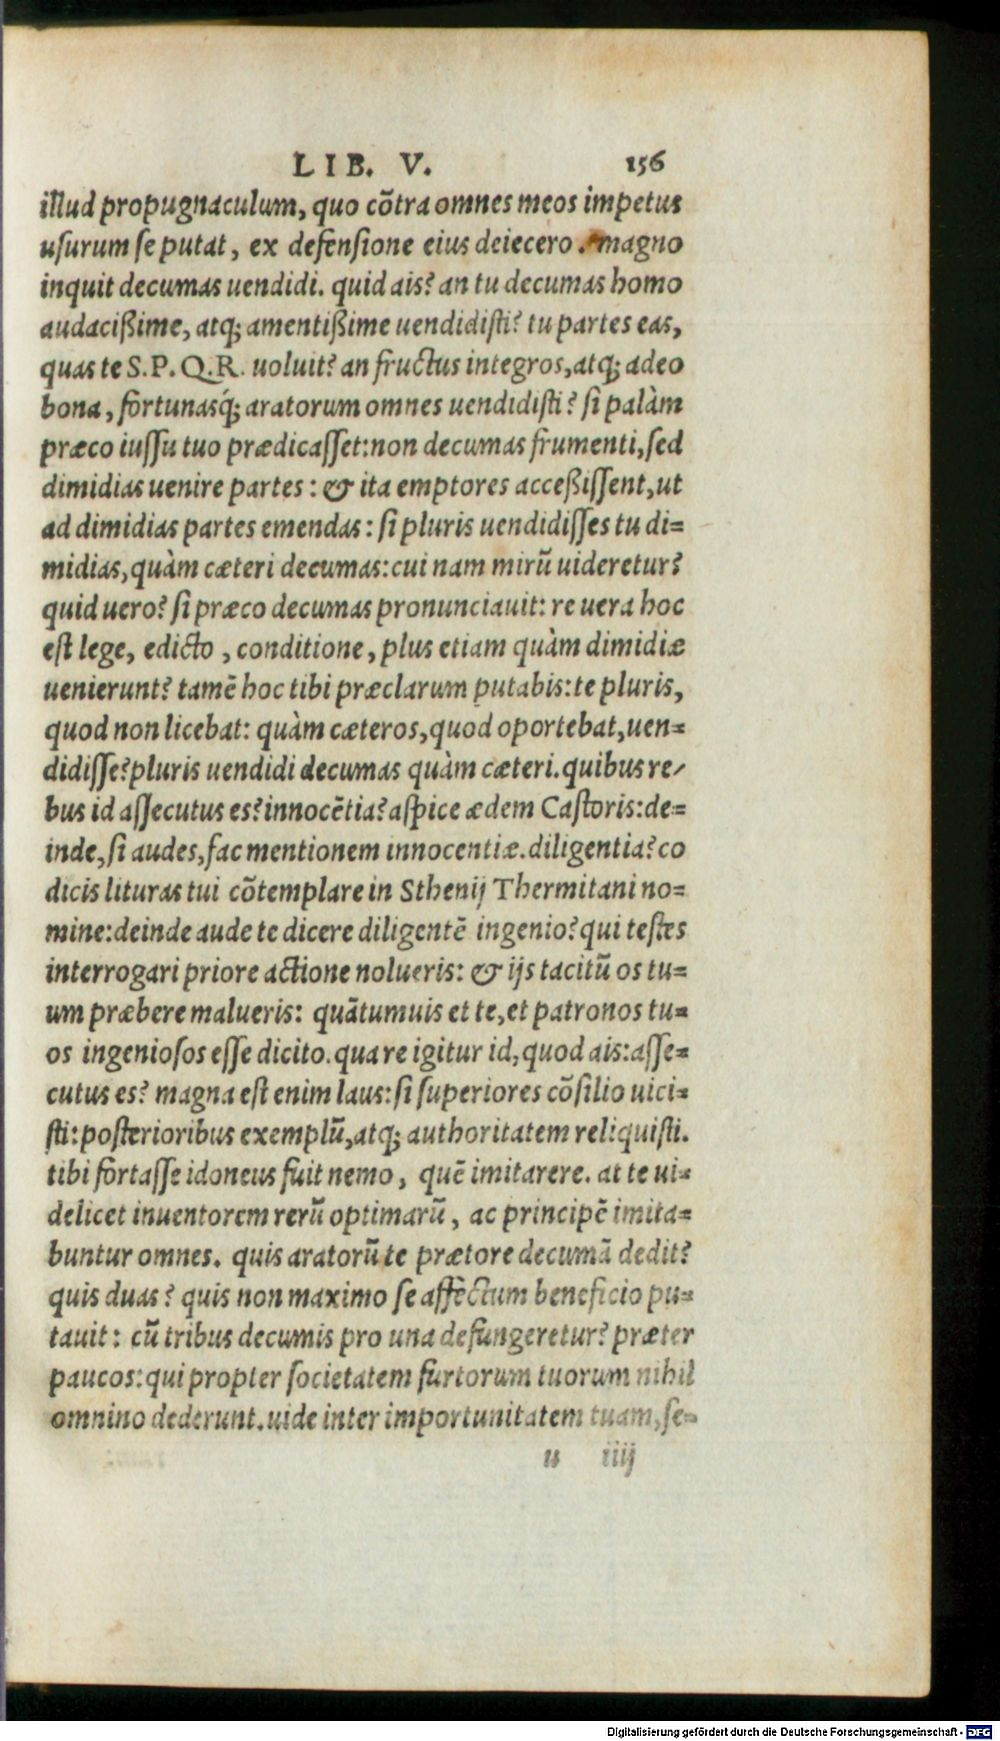 LIB. V. 156
illud propugnaculum, quo cõtra omnes meos impetus
usurum se putat, ex defensione eius deiecero. magno
inquit decumas uendidi. quid ais? an tu decumas homo
audacißime, atq; amentißime uendidisti? tu partes eas,
quas te S.P.Q.R. uoluit? an fructus integros, atq; adeo
bona, fortunasq́; aratorum omnes uendidisti? si palàm
præco iussu tuo prædicasset: non decumas frumenti, sed
dimidias uenire partes: & ita emptores acceßissent, ut
ad dimidias partes emendas: si pluris uendidisses tu di=
midias, quàm cæteri decumas: cui nam mirũ uideretur?
quid uero? si præco decumas pronunciauit: re uera hoc
est lege, edicto, conditione, plus etiam quàm dimidiæ
uenierunt? tamẽ hoc tibi præclarum putabis: te pluris,
quod non licebat: quàm cæteros, quod oportebat, uen=
didisse? pluris uendidi decumas quàm cæteri. quibus re/
bus id assecutus es? innocẽtia? aspice ædem Castoris: de=
inde, si audes, fac mentionem innocentiæ. diligentia? co
dicis lituras tui cõtemplare in Sthenij Thermitani no=
mine: deinde aude te dicere diligentẽ ingenio? qui testes
interrogari priore actione nolueris: & ijs tacitũ os tu=
um præbere malueris: quãtumuis et te, et patronos tu=
os ingeniosos esse dicito. quare igitur id, quod ais: asse=
cutus es? magna est enim laus: si superiores cõsilio uici=
sti: posterioribus exemplũ, atq; authoritatem reliquisti.
tibi fortasse idoneus fuit nemo, quẽ imitarere. at te ui=
delicet inuentorem rerũ optimarũ, ac principẽ imita=
buntur omnes. quis aratorũ te prætore decumã dedit?
quis duas? quis non maximo se affectum beneficio pu=
tauit: cũ tribus decumis pro una defungeretur? præter
paucos: qui propter societatem furtorum tuorum nihil
omnino dederunt. uide inter importunitatem tuam, se=
u iiij
Digitalisierung gefördert durch die Deutsche Forschungsgemeinschaft - DFG